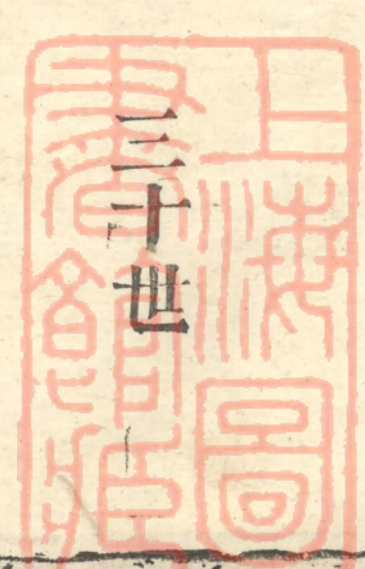 三十世
上海圖
書館藏